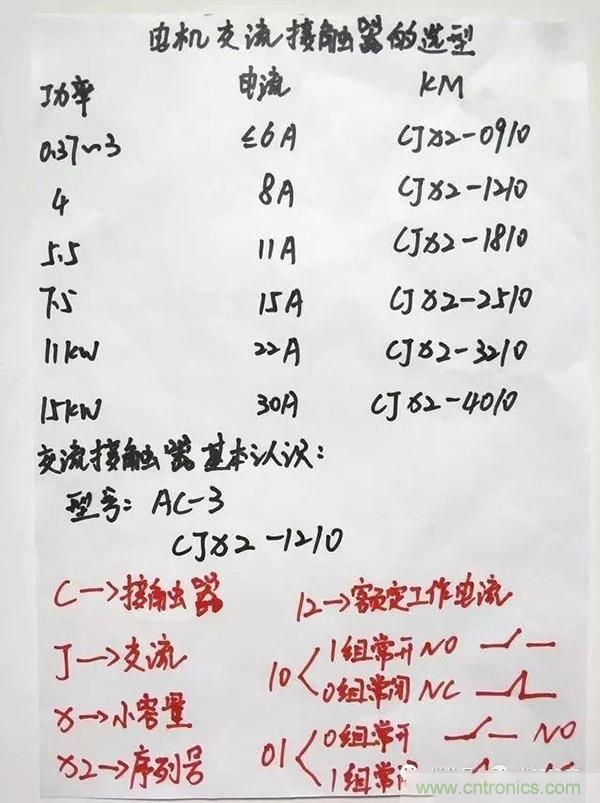 电机交流接触器的选型
功率 电流 KM
0.37~3 ≤6A CJX2-0910
4 8A CJX2-1210
5.5 11A CJX2-1810
7.5 15A CJX2-2510
11kW 22A CJX2-3210
15kW 30A CJX2-4010
交流接触器基本认识:
型号: AC-3
CJX2-1210
C→接触器 12→额定工作电流
J→交流 10 1组常开 NO
0组常闭 NC
X→小容量
X2→序列号 01 0组常开 NO
1组常闭
www.cntronics.com